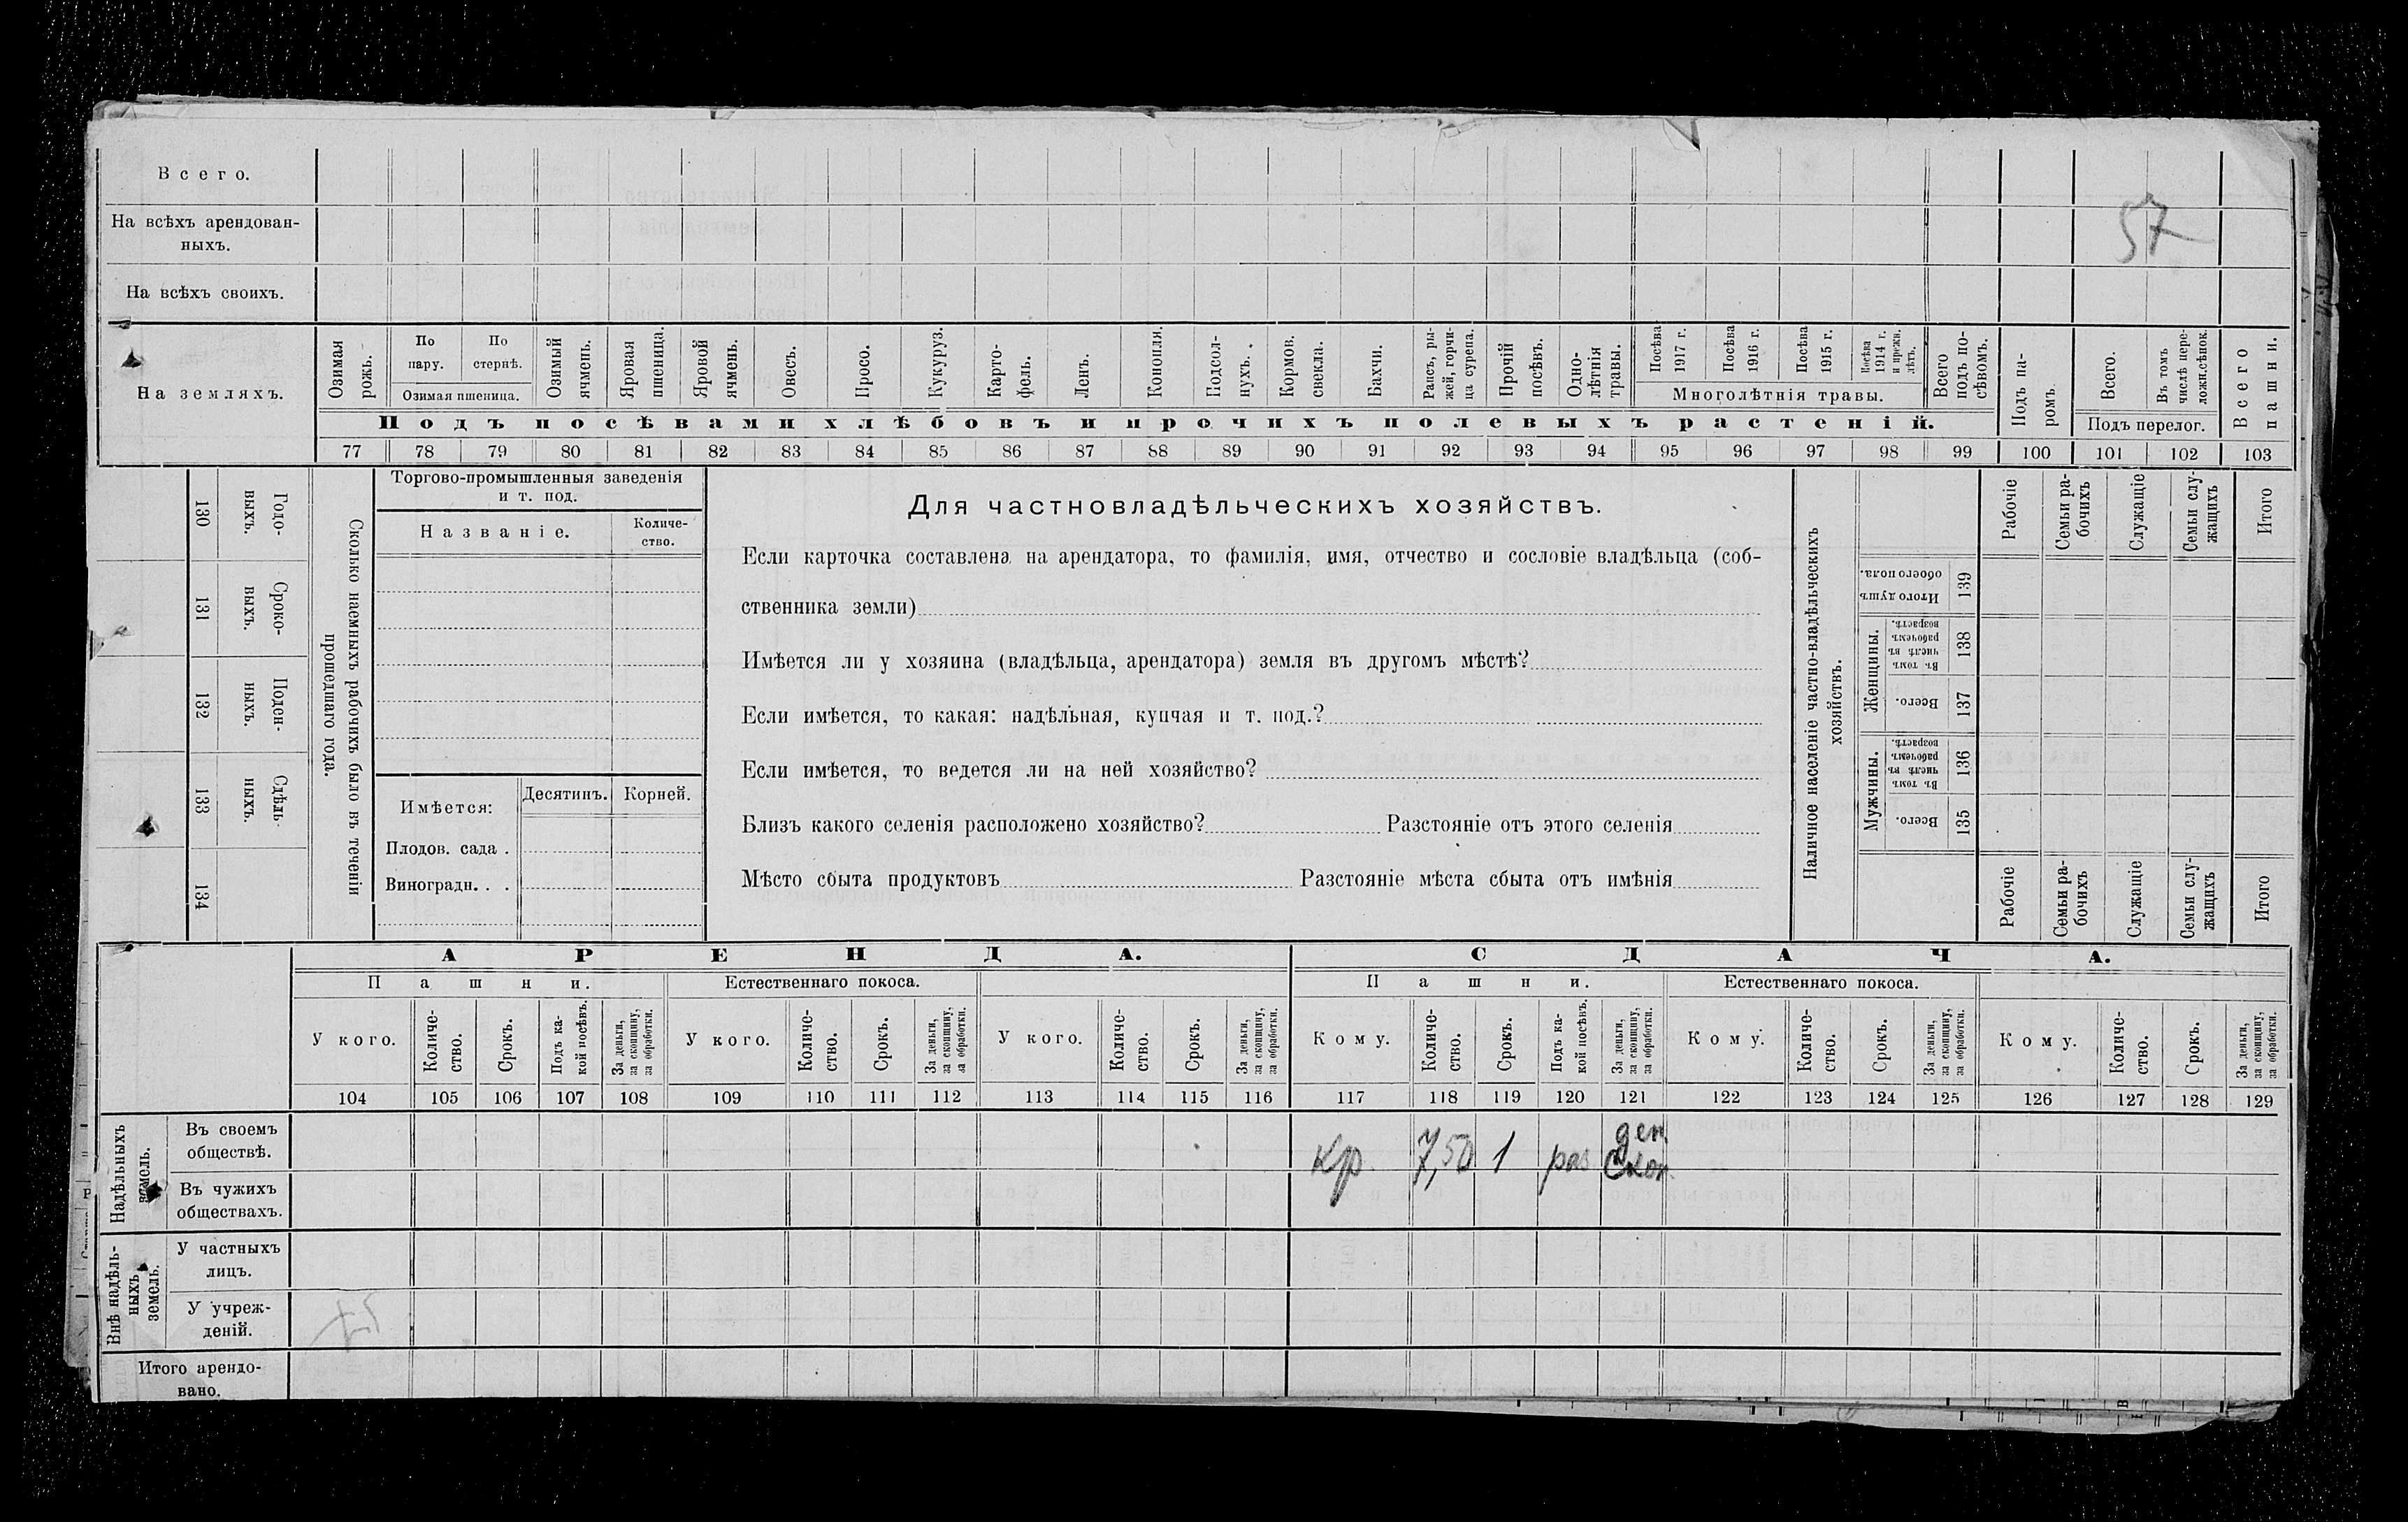 Всего.
На всѣхъ арендован-
ныхъ.
57
На всѣхъ своихъ.
На земляхъ.
Озимая рожь.
По пару.
По стернѣ.
Озимая пшеница.
Озимый ячмень.
Яровая пшеница.
Яровой ячмень.
Овесъ.
Просо.
Кукуруз.
Карто-
фель.
Ленъ.
Конопля.
Подсол-
нухъ.
Кормов. свекла.
Бахчи.
Рапсъ, ры-
жей, горчи-
ца сурепа.
Прочій посѣвъ.
Одно-
лѣтнія травы.
Посѣва 1917 г.
Посѣва 1916 г.
Посѣва 1915 г.
Посѣва 1914 г. и прежн. лѣтъ.
Многолѣтнія травы.
Всего подъ по-
сѣвомъ.
Подъ па-
ромъ.
Всего.
Въ томъ числѣ пере-
ложн.сѣнок.
Подъ перелог.
Всего пашни.
Подъ посѣвами хлѣбовъ и прочихъ полевыхъ растеній.
77 78 79 80 81 82 83 84 85 86 87 88 89 90 91 92 93 94 95 96 97 98 99 100 101 102 103
130 Годо-
выхъ.
131 Сроко-
выхъ.
132 Поден-
ныхъ.
133 Сдѣль-
ныхъ.
134
Сколько наемныхъ рабочихъ было въ теченіи
прошедшаго года.
Торгово-промышленныя заведенія
и т. под.
Названіе.
Количе-
ство.
Имѣется:
Десятинъ.
Корней.
Плодов. сада .
Виноградн. . .
Для частновладѣльческихъ хозяйствъ.
Если карточка составлена на арендатора, то фамилія, имя, отчество и сословіе владѣльца (соб-
ственника земли)
Имѣется ли у хозяина (владѣльца, арендатора) земля въ другомъ мѣстѣ?
Если имѣется, то какая: надѣльная, купчая и т. под.?
Если имѣется, то ведется ли на ней хозяйство?
Близъ какого селенія расположено хозяйство? Разстояніе отъ этого селенія
Мѣсто сбыта продуктовъ Разстояніе мѣста сбыта отъ имѣнія
Наличное населеніе частно-владѣльческихъ
хозяйствъ.
Рабочіе
Семьи ра-
бочихъ
Служащіе
Семьи слу-
жащихъ
Итого
Итого душъ обоего пола. 139
Женщины.
Въ томъ числѣ въ рабочемъ возрастѣ. 138
Всего. 137
Мужчины.
Въ томъ числѣ въ рабочемъ возрастѣ. 136
Всего. 135
Рабочіе
Семьи ра-
бочихъ
Служащіе
Семьи слу-
жащихъ
Итого
АРЕНДА.
СДАЧА.
Пашни.
Естественнаго покоса.
Пашни.
Естественнаго покоса.
У кого.
Количе-
ство.
Срокъ.
Подъ ка-
кой посѣвъ.
За деньги, за скопщину, за обработки.
У кого.
Количе-
ство.
Срокъ.
За деньги, за скопщину, за обработки.
У кого.
Количе-
ство.
Срокъ.
За деньги, за скопщину, за обработки.
Кому.
Количе-
ство.
Срокъ.
Подъ ка-
кой посѣвъ.
За деньги, за скопщину, за обработки.
Кому.
Количе-
ство.
Срокъ.
За деньги, за скопщину, за обработки.
Кому.
Количе-
ство.
Срокъ.
За деньги, за скопщину, за обработки.
104 105 106 107 108 109 110 111 112 113 114 115 116 117 118 119 120 121 122 123 124 125 126 127 128 129
Надѣльныхъ земель.
Въ своемъ
обществѣ.
Кр. 7,50 1 раз ден. Скоп.
Въ чужихъ
обществахъ.
Внѣ надѣль-
ныхъ земель.
У частныхъ
лицъ.
У учреж-
деній.
Итого арендо-
вано.